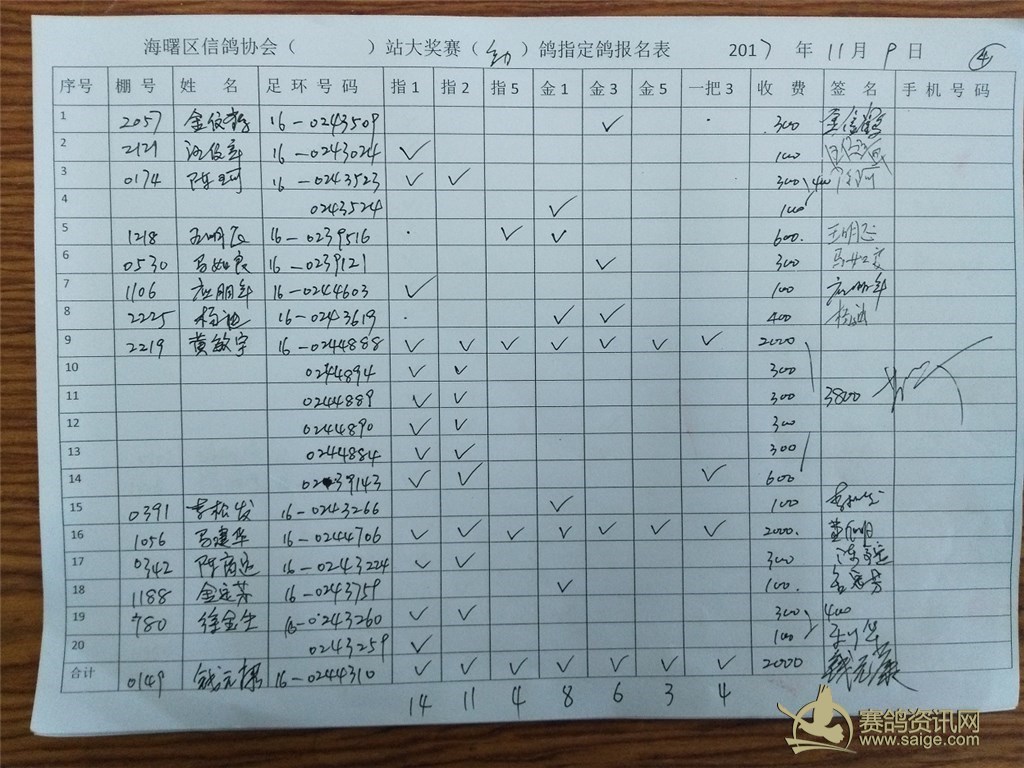 海曙区信鸽协会（ ）站大奖赛（幼）鸽指定鸽报名表 2017 年 11 月 9 日 ④
序号 棚号 姓名 足环号码 指1 指2 指5 金1 金3 金5 一把3 收费 签名 手机号码
1 2057 16-0243509 ✓ 300
2 2121 16-0243024 ✓ 100
3 0174 陈珂 16-0243523 ✓ ✓ 300 400 陈珂
4 0243524 ✓ 100
5 1218 16-0239516 ✓ ✓ 600.
6 0530 16-0239121 ✓ 300
7 1106 应朋年 16-0244603 ✓ 100 应朋年
8 2225 杨迪 16-0243619 ✓ ✓ 400 杨迪
9 2219 黄敏宇 16-0244888 ✓ ✓ ✓ ✓ ✓ ✓ ✓ 2000
10 0244894 ✓ ✓ 300
11 0244889 ✓ ✓ 300 3800
12 0244890 ✓ ✓ 300
13 0244884 ✓ ✓ 300
14 0239143 ✓ ✓ ✓ 600
15 0391 李松发 16-0243266 ✓ 100
16 1056 马建华 16-0244706 ✓ ✓ ✓ ✓ ✓ ✓ ✓ 2000.
17 0342 16-0243224 ✓ ✓ 300
18 1188 金定芬 16-0243759 ✓ 100.
19 780 徐金生 16-0243260 ✓ ✓ 300 400
20 0243259 ✓ 100
合计 0149 16-0244310 ✓ ✓ ✓ ✓ ✓ ✓ ✓ 2000
14 11 4 8 6 3 4
赛鸽资讯网
www.saige.com